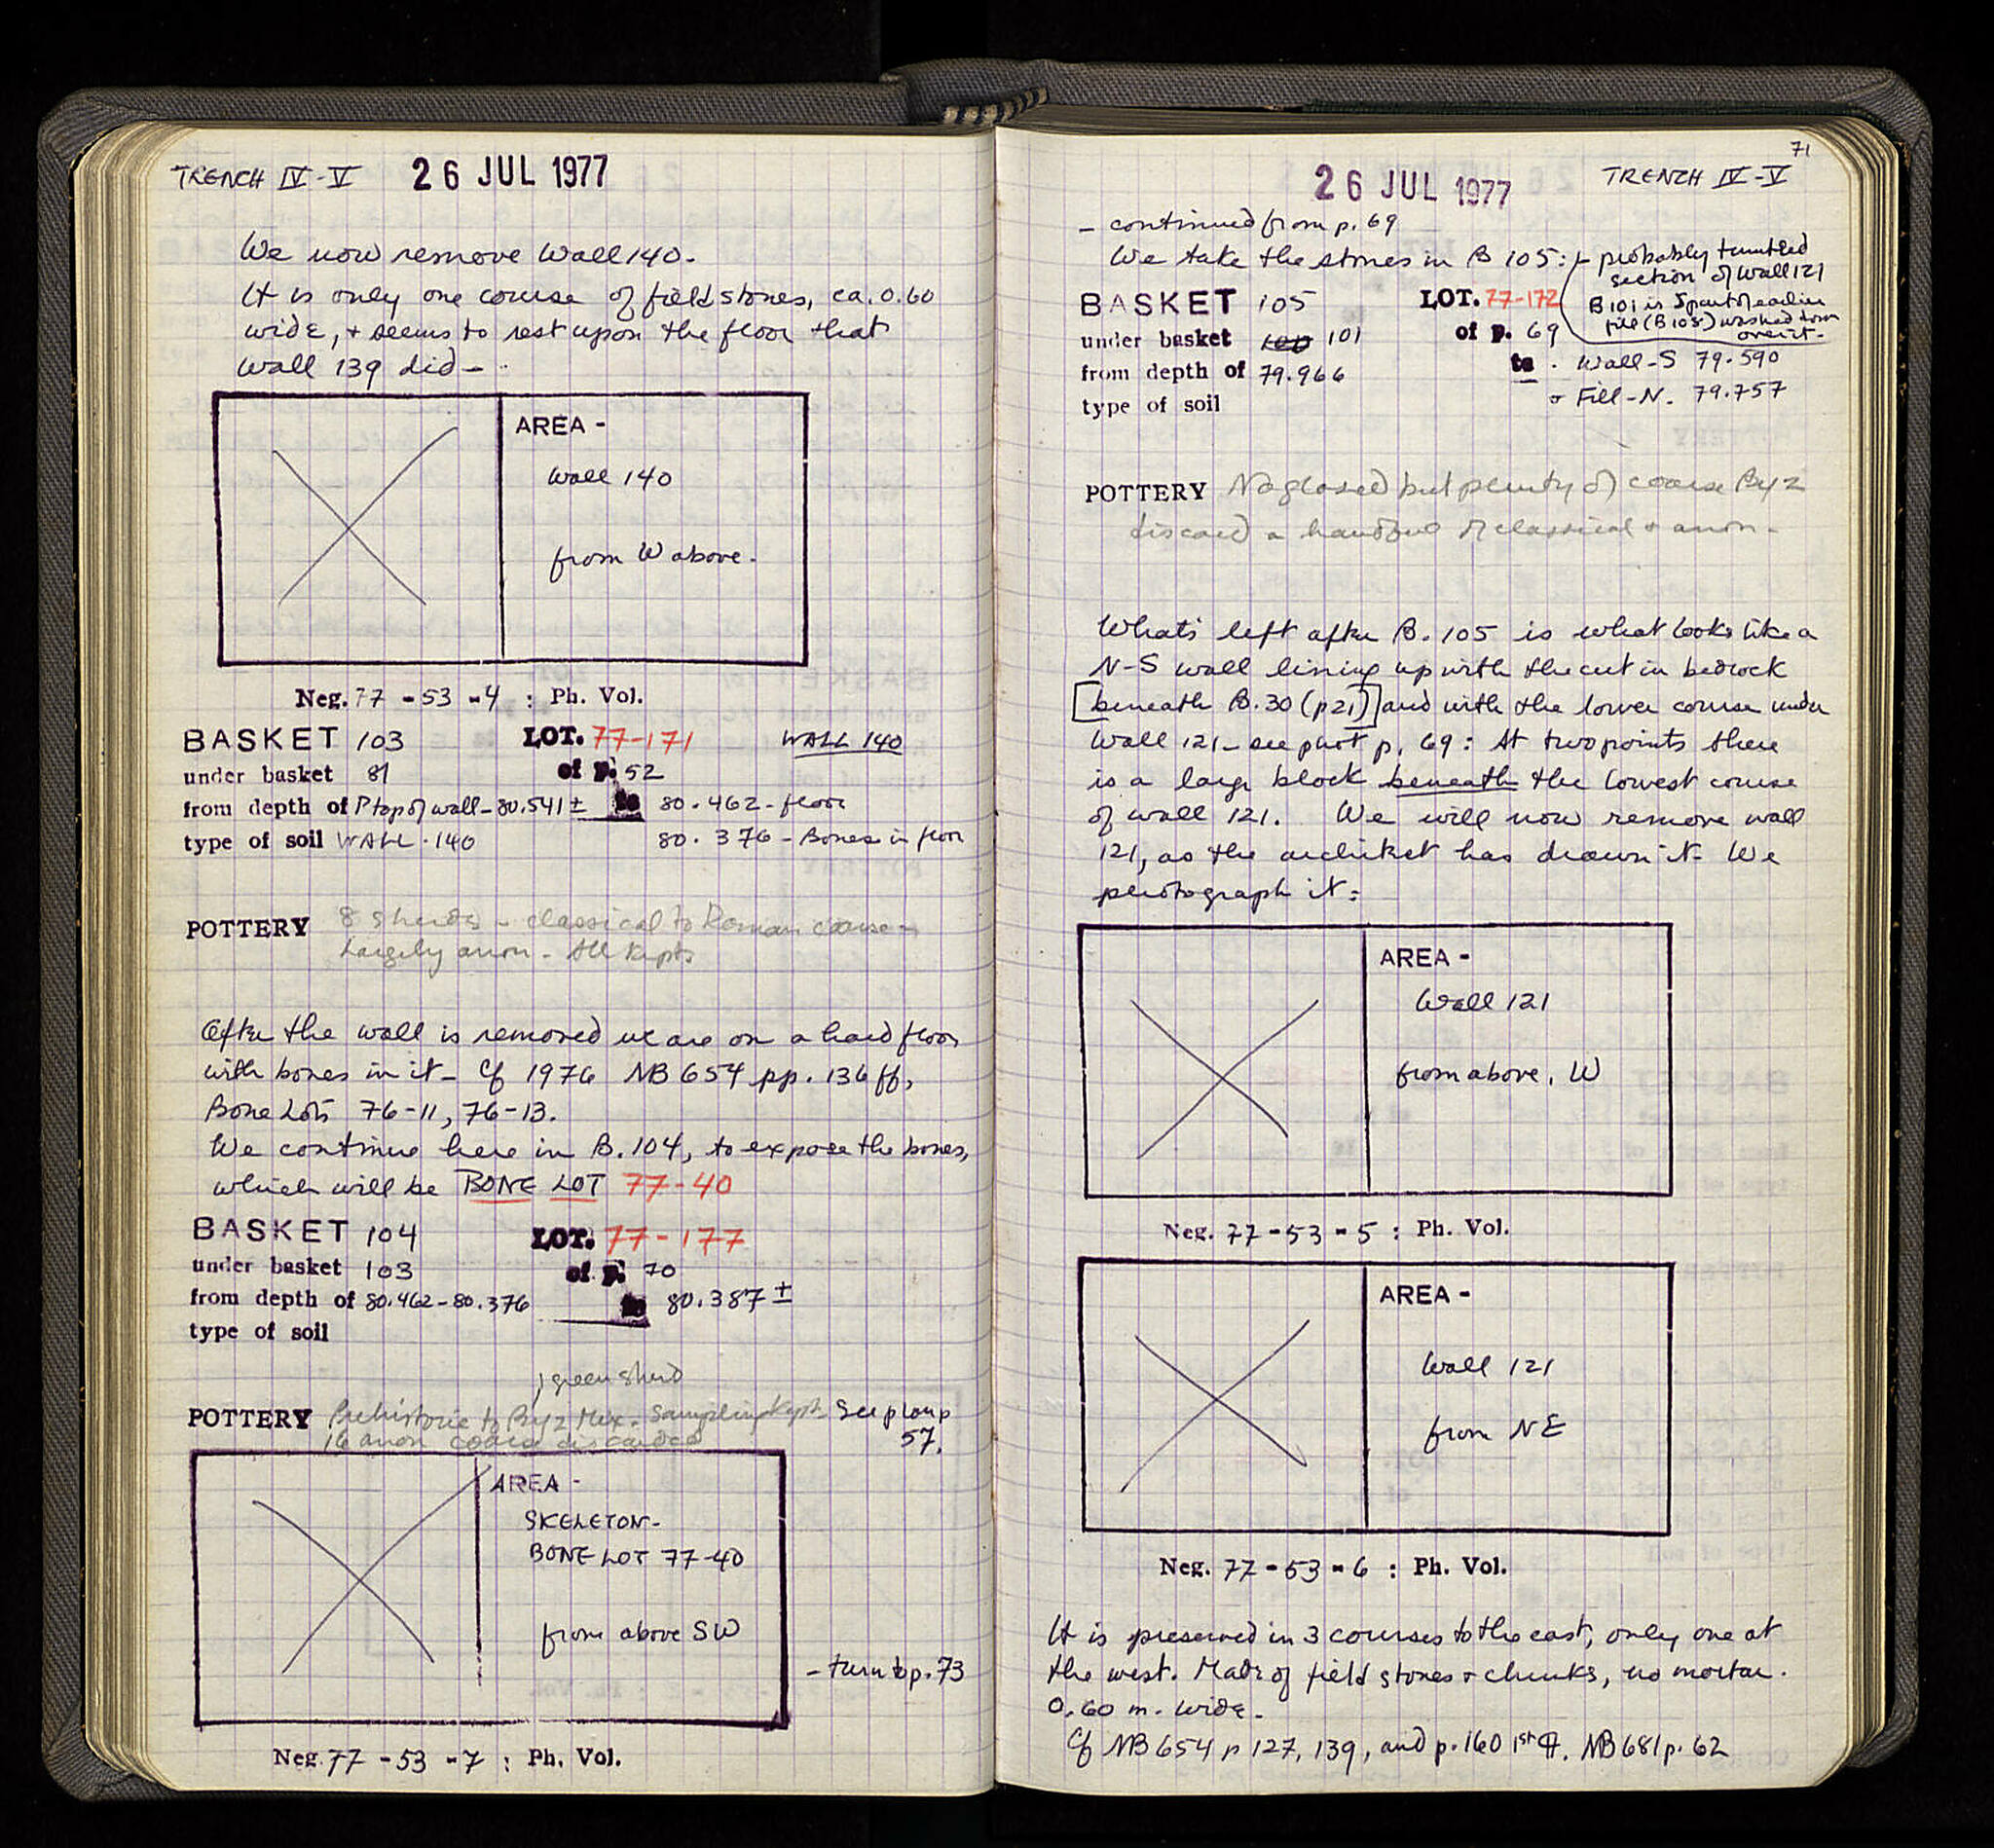 TRENCH IV-V 26 JUL 1977
We now remove Wall 140.
It is only one course of field stones, ca. 0.60
wide, + seems to rest upon the floor that
wall 139 did -
AREA -
Wall 140
from W above.
Neg. 77 - 53 - 4 : Ph. Vol.
BASKET 103 LOT. 77-171 WALL 140
under basket 81 of p. 52
from depth of top of wall - 80.541 ± to 80.462 - floor
type of soil WALL 140 80.376 - Bones in floor
POTTERY 8 sherds - classical to Roman coarse -
Largely anon - All kept
After the wall is removed we are on a hard floor
with bones in it - Cf 1976 NB 654 pp. 136 ff,
Bone Lots 76-11, 76-13.
We continue here in B. 104, to expose the bones,
which will be BONE LOT 77-40
BASKET 104 LOT. 77-177
under basket 103 of p. 70
from depth of 80.462-80.376 to 80.387 ±
type of soil
1 green sherd
POTTERY Prehistoric to Byz Mix. Sampling kept See plan p
16 anon coarse discarded 57.
AREA -
SKELETON -
BONE LOT 77-40
from above SW
- turn to p. 73
Neg. 77 - 53 - 7 : Ph. Vol.
71
26 JUL 1977 TRENCH IV-V
- continued from p. 69
We take the stones in B 105: - probably tumbled
section of wall 121
B 101 is part of earlier
fill (B 105) washed down
over it.
BASKET 105 LOT. 77-172
under basket 100 101 of p. 69
from depth of 79.966 to Wall-S 79.590
type of soil + Fill-N. 79.757
POTTERY No glazed but plenty of coarse Byz
discard a handful of classical + anon -
What's left after B. 105 is what looks like a
N-S wall lining up with the cut in bedrock
[beneath B. 30 (p21)] and with the lower course under
Wall 121 - see phot p. 69: At two points there
is a large block beneath the lowest course
of wall 121. We will now remove wall
121, as the architect has drawn it - We
photograph it:
AREA -
Wall 121
from above, W
Neg. 77 - 53 - 5 : Ph. Vol.
AREA -
Wall 121
from NE
Neg. 77 - 53 - 6 : Ph. Vol.
It is preserved in 3 courses to the east, only one at
the west. Made of field stones + chunks, no mortar.
0.60 m. wide.
Cf NB 654 p 127, 139, and p. 160 1st ¶. NB 681 p. 62